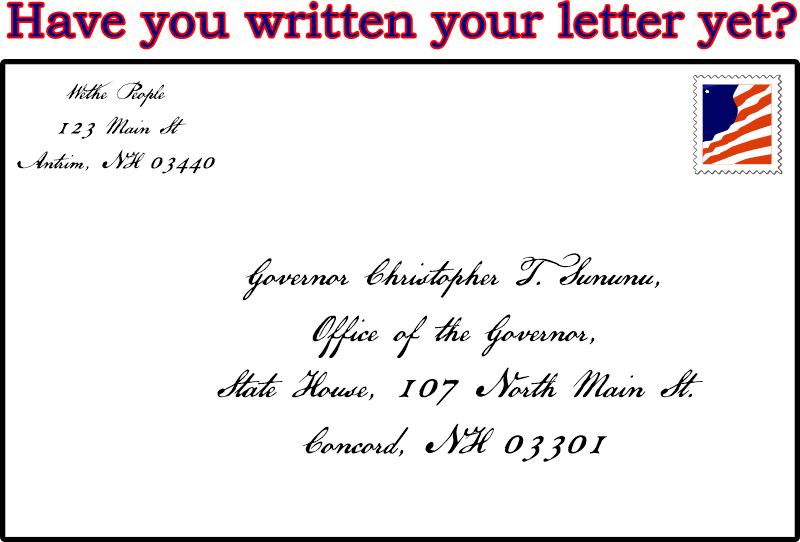 Have you written your letter yet?
Wethe People
123 Main St
Antrim, NH 03440
Governor Christopher T. Sununu,
Office of the Governor,
State House, 107 North Main St.
Concord, NH 03301